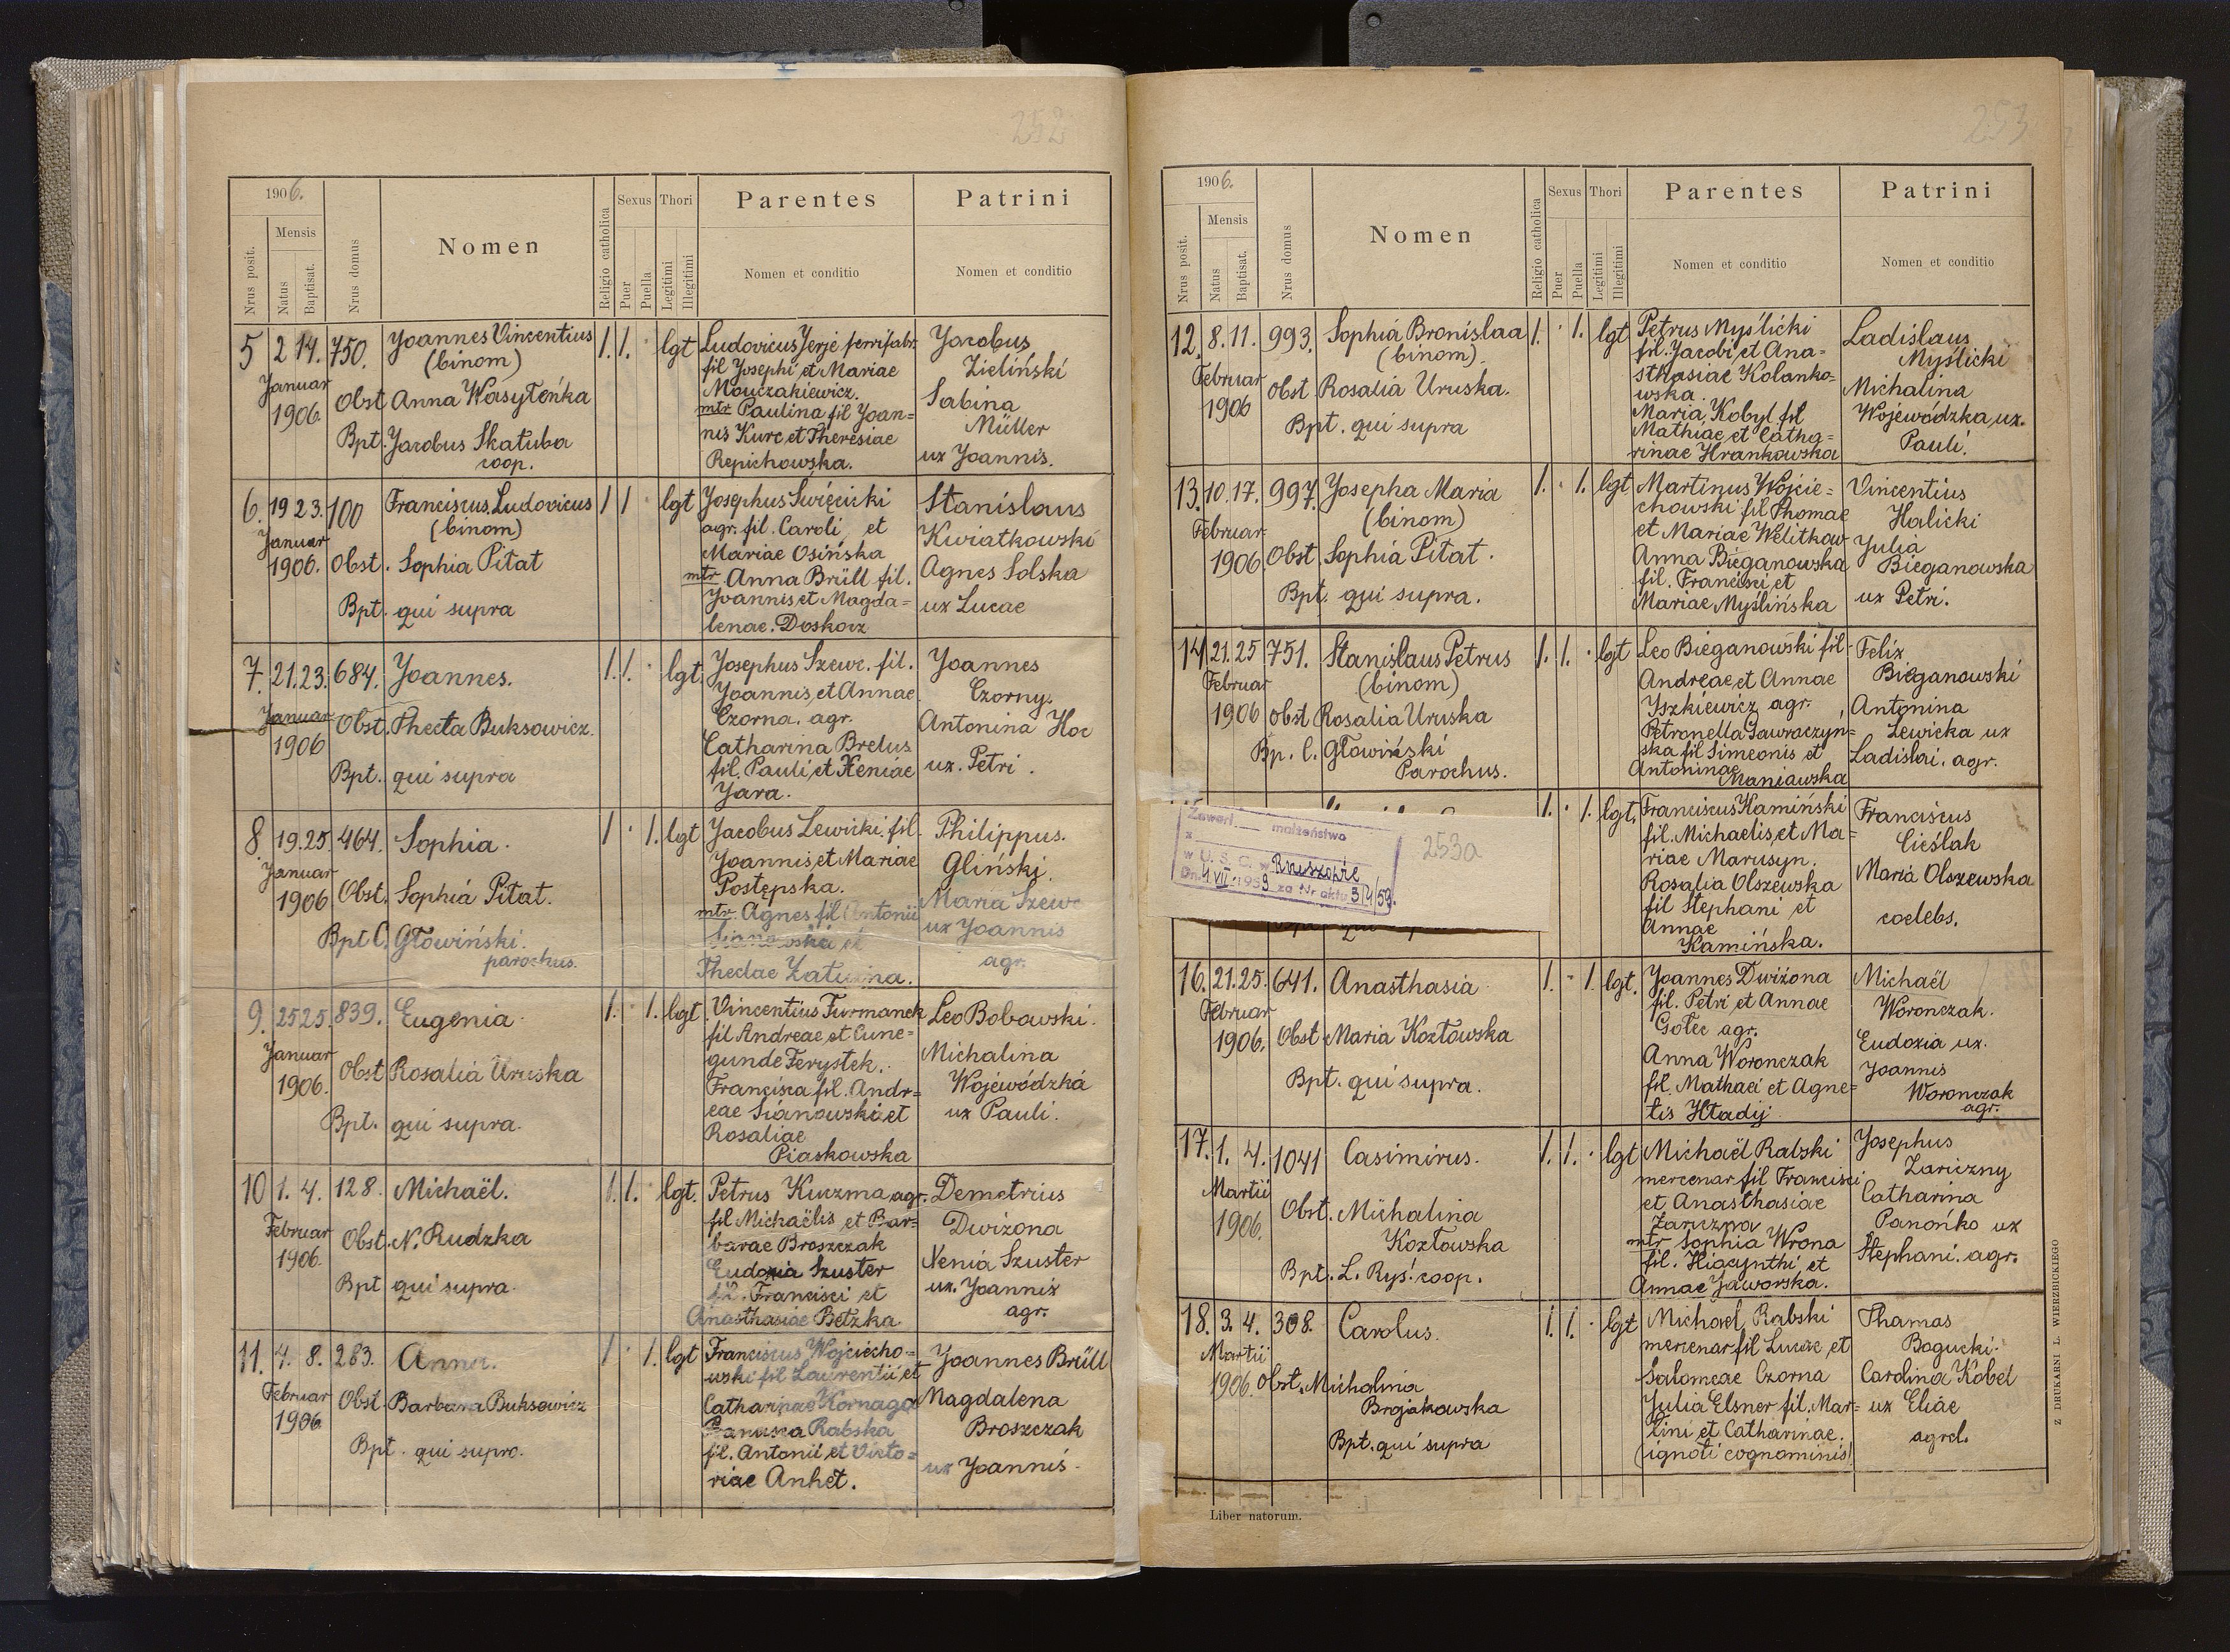 252
1906.
Nrus posit.
Mensis
Natus
Baptisat.
Nrus domus
Nomen
Religio catholica
Sexus
Puer
Puella
Thori
Legitimi
Illegitimi
Parentes
Nomen et conditio
Patrini
Nomen et conditio
5 2 14. 750. Joannes Vincentius 1. 1. lgt
(binom)
Januar
1906. Obst Anna Wasyleńka
Bpt. Jacobus Skałuba
coop.
Ludovicus Jerje ferrifabr.
fil Josephi et Mariae
Mouczakiewicz.
mtr Paulina fil Joan=
nis Kurc et Theresiae
Repichowska.
Jacobus
Zieliński
Sabina
Müller
ux Joannis.
6. 19 23. 100 Franciscus Ludovicus 1 1 lgt
(binom)
Januar
1906. Obst. Sophia Pitat
Bpt. qui supra
Josephus Święcicki
agr. fil. Caroli et
Mariae Osińska
mtr Anna Brüll fil.
Joannis et Magda=
lenae. Doskocz
Stanislaus
Kwiatkowski
Agnes Solska
ux Lucae
7. 21. 23. 684. Joannes. 1. 1. lgt.
Januar
1906 Obst. Thecla Buksowicz.
Bpt. qui supra
Josephus Szewc. fil.
Joannis, et Annae
Czorna. agr.
Catharina Brelus
fil. Pauli et Xeniae
Jara.
Joannes
Czorny.
Antonina Hoc
ux. Petri.
8. 19. 25. 464. Sophia. 1 1. lgt
Januar
1906 Obst. Sophia Pitat.
Bpt C. Głowiński.
parochus.
Jacobus Lewicki. fil.
Joannis et Mariae
Postępska.
mtr. Agnes fil Antonii
et
Theclae
Philippus.
Gliński.
Maria Szewc
ux Joannis
agr.
9. 25 25. 839. Eugenia. 1. 1. lgt
Januar
1906. Obst Rosalia Uruska
Bpt. qui supra.
Vincentius Furmanek
fil Andreae et Cune=
gunde Ferystek.
Francisca fil. Andr=
eae Sianowski et
Rosaliae
Piaskowska
Leo Bobowski.
Michalina
Wojewódzka
ux Pauli.
10 1. 4. 128. Michaël. 1. 1. lgt.
Februar
1906. Obst. N. Rudzka
Bpt qui supra.
Petrus Kuczma agr.
fil Michaëlis et Bar=
barae Broszczak
Eudoxia Szuster
fil. Francisci et
Anasthasiae Betzka
Demetrius
Dwiżona
Xenia Szuster
ux. Joannis
agr.
11. 4. 8. 283. Anna. 1 1. lgt
Februar
1906 Obst. Barbara Buksowicz
Bpt. qui supra.
Franciscus Wojciecho=
wski fil Laurentii et
Catharinae Kornaga
Rabska
fil. Antonii et Victo=
riae Anhet.
Joannes Brüll
Magdalena
Broszczak
ux Joannis.
253
1906.
Nrus posit.
Mensis
Natus
Baptisat.
Nrus domus
Nomen
Religio catholica
Sexus
Puer
Puella
Thori
Legitimi
Illegitimi
Parentes
Nomen et conditio
Patrini
Nomen et conditio
12. 8. 11. 993. Sophia Bronislaa 1. 1. lgt
(binom).
Februar
1906 Obst Rosalia Uruska.
Bpt. qui supra
Petrus Myślicki
fil. Jacobi et Ana=
sthasiae Kolanko=
wska.
Maria Kobyl fil
Mathiae et Catha=
rinae Hrankowska
Ladislaus
Myślicki
Michalina
Wojewódzka ux.
Pauli.
13. 10. 17. 997. Josepha Maria 1. 1. lgt
(binom)
Februar
1906. Obst Sophia Pitat.
Bpt. qui supra.
Martinus Wojcie=
chowski fil Thomae
et Mariae Welitkow
Anna Bieganowska
fil. Francisci et
Mariae Myślińska
Vincentius
Halicki
Julia
Bieganowska
ux Petri.
14 21. 25 751. Stanislaus Petrus 1. 1. lgt
(binom)
Februar
1906 Obst Rosalia Uruska
Bp. C. Głowiński
Parochus.
Leo Bieganowski fil
Andreae et Annae
Iszkiewicz agr.
Petronella Gawraczyń=
ska fil Simeonis et
Antoninae
Maniawska
Felix
Bieganowski
Antonina
Lewicka ux
Ladislai. agr.
1. 1. lgt.
Franciscus Kamiński
fil. Michaelis et Ma=
riae Marusyn.
Rosalia Olszewska
fil Stephani et
Annae
Kamińska.
Franciscus
Cieślak
Maria Olszewska
coelebs.
Zawarł małżeństwo
z
w U. S. C. w Rzeszowie
Dn. 4 VII 1959 za Nr aktu 314/59.
253a
16. 21. 25. 641. Anasthasia 1. 1. lgt.
Februar
1906. Obst Maria Kozłowska
Bpt. qui supra.
Joannes Dwiżona
fil. Petri et Annae
Golec agr.
Anna Woronczak
fil. Mathaei et Agne=
tis Hładij
Michaël
Woronczak.
Eudoxia ux.
Joannis
Woronczak
agr.
17. 1. 4. 1041 Casimirus. 1. 1. lgt
Martii
1906. Obst. Michalina
Kozłowska
Bpt. L. Ryś. coop.
Michaël Rabski
mercenar fil Francisci
et Anasthasiae
Zariczna
mtr Sophia Wrona
fil. Hiacynthi et
Annae Jaworska.
Josephus
Zariczny
Catharina
Panońko ux
Stephani. agr.
18. 3. 4. 308. Carolus. 1. 1. lgt
Martii
1906. Obst. Michalina
Brojakowska
Bpt. qui supra
Michael Rabski
mercenar fil Lucae et
Salomeae Czorna
Julia Elsner fil. Mar=
tini et Catharinae.
(ignoti cognominis)
Thomas
Bogucki.
Carolina Kobel
ux Eliae
agrcl.
Liber natorum.
Z DRUKARNI L. WIERZBICKIEGO